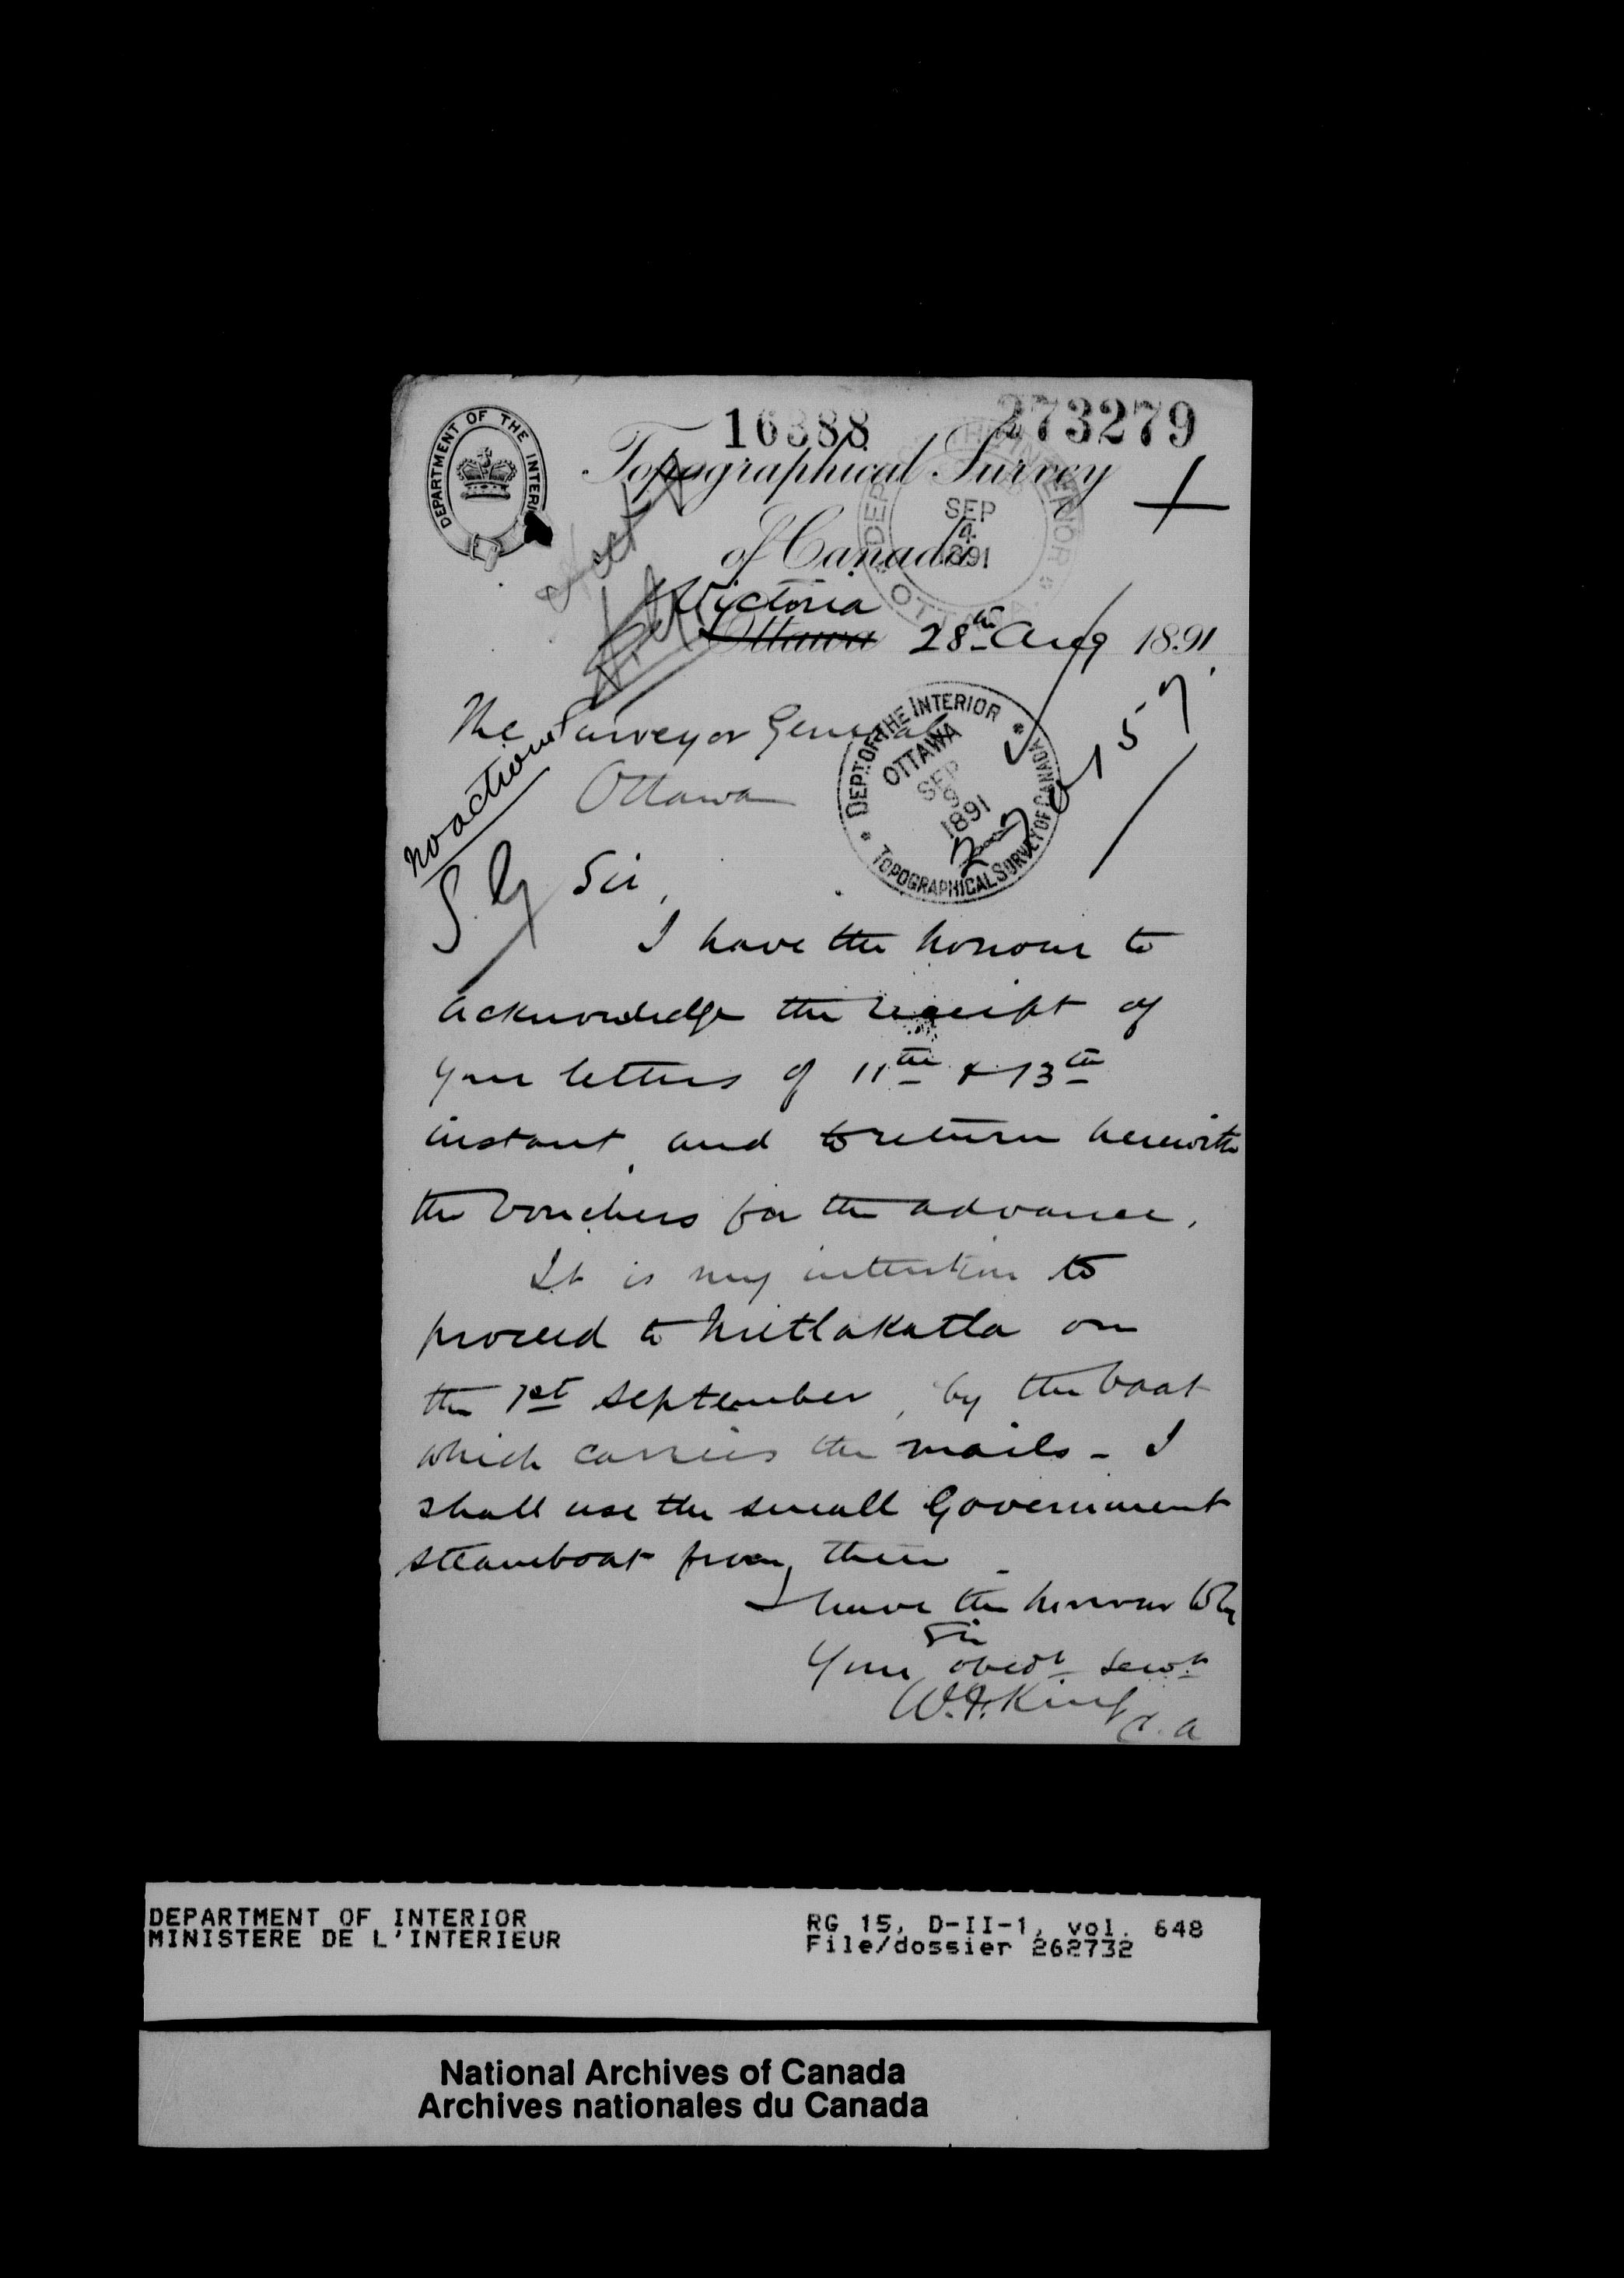 DEPARTMENT OF THE INTERI
16388
273279
Topographical Survey
of Canada
DEPT OF THE INTERIOR
SEP
4
1891
OTTAWA
Victoria
Ottawa 28th Aug 1891
The Surveyor General
Ottawa
DEPT. OF THE INTERIOR
OTTAWA
SEP
9
1891
TOPOGRAPHICAL SURVEY OF CANADA
no action
S. G
Sir,
I have the honour to
acknowledge the receipt of
your letters of 11th & 13th
instant, and to return herewith
the vouchers for the advance.
It is my intention to
proceed to Metlakatla on
the 1st September, by the boat
which carries the mails - I
shall use the small Government
steamboat from there
I have the honour to be
Sir
Your obedt servt
W. F. King
C. A
DEPARTMENT OF INTERIOR
MINISTERE DE L'INTERIEUR
RG 15, D-II-1, vol. 648
File/dossier 262732
National Archives of Canada
Archives nationales du Canada